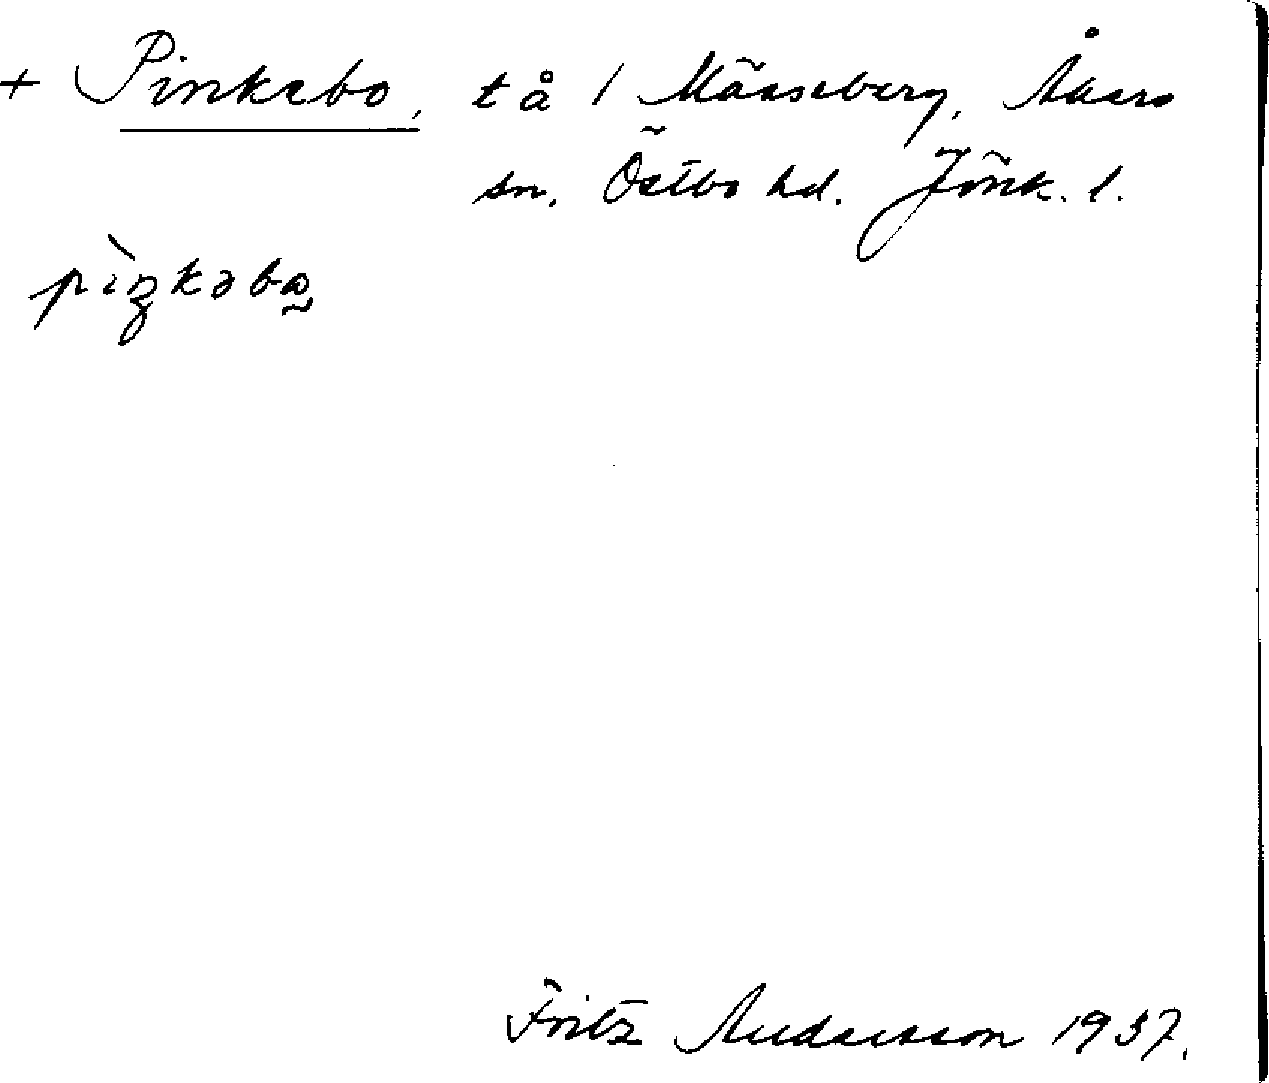 + Pinkebo, tå / Mäåseberg, Åkers
sn. Östbo hd. Jönk. l.
pìŋkəbo
Fritz Andersson 1937.